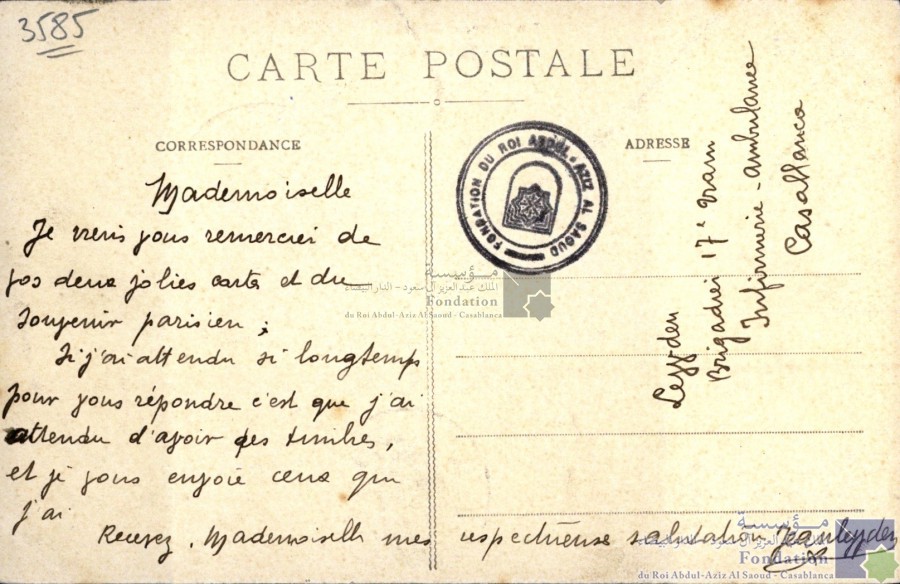 3585
CARTE POSTALE
CORRESPONDANCE
ADRESSE
FONDATION DU ROI ABDUL-AZIZ AL SAOUD
Mademoiselle
Je viens vous remercier de
vos deux jolies carte et du
souvenir parisien ;
Si j'ai attendu si longtemps
pour vous répondre c'est que j'ai
attendu d'avoir des timbres,
et je vous envoie ceux que
j'ai
Recevez, Mademoiselle mes respectueuse salutation
Brigadier 17e train
Infirmerie-ambulance
Casablanca
مؤسسة
الملك عبد العزيز آل سعود - الدار البيضاء
Fondation
du Roi Abdul-Aziz Al Saoud - Casablanca
مؤسسة
الملك عبد العزيز آل سعود - الدار البيضاء
Fondation
du Roi Abdul-Aziz Al Saoud - Casablanca